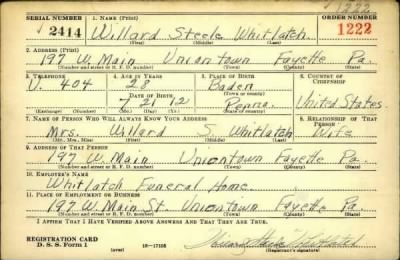 1222
SERIAL NUMBER 1. NAME (Print) ORDER NUMBER
2414 Willard Steele Whitlatch 1222
(First) (Middle) (Last)
2. ADDRESS (Print)
197 W. Main Uniontown Fayette Pa.
(Number and street or R. F. D. number) (Town) (County) (State)
3. TELEPHONE 4. AGE IN YEARS 5. PLACE OF BIRTH 6. COUNTRY OF CITIZENSHIP
U. 404 28 Baden
DATE OF BIRTH (Town or county)
7 21 12 Penna. United States
(Exchange) (Number) (Mo.) (Day) (Yr.) (State or country)
7. NAME OF PERSON WHO WILL ALWAYS KNOW YOUR ADDRESS 8. RELATIONSHIP OF THAT PERSON
Mrs. Willard S. Whitlatch Wife
(Mr., Mrs., Miss) (First) (Middle) (Last)
9. ADDRESS OF THAT PERSON
197 W. Main Uniontown Fayette Pa.
(Number and street or R. F. D. number) (Town) (County) (State)
10. EMPLOYER'S NAME
Whitlatch Funeral Home
11. PLACE OF EMPLOYMENT OR BUSINESS
197 W. Main St. Uniontown Fayette Pa.
(Number and street or R. F. D. number) (Town) (County) (State)
I AFFIRM THAT I HAVE VERIFIED ABOVE ANSWERS AND THAT THEY ARE TRUE.
REGISTRATION CARD
D. S. S. Form 1 (over) 16—17105 Willard Steele Whitlatch
(Registrant's signature)